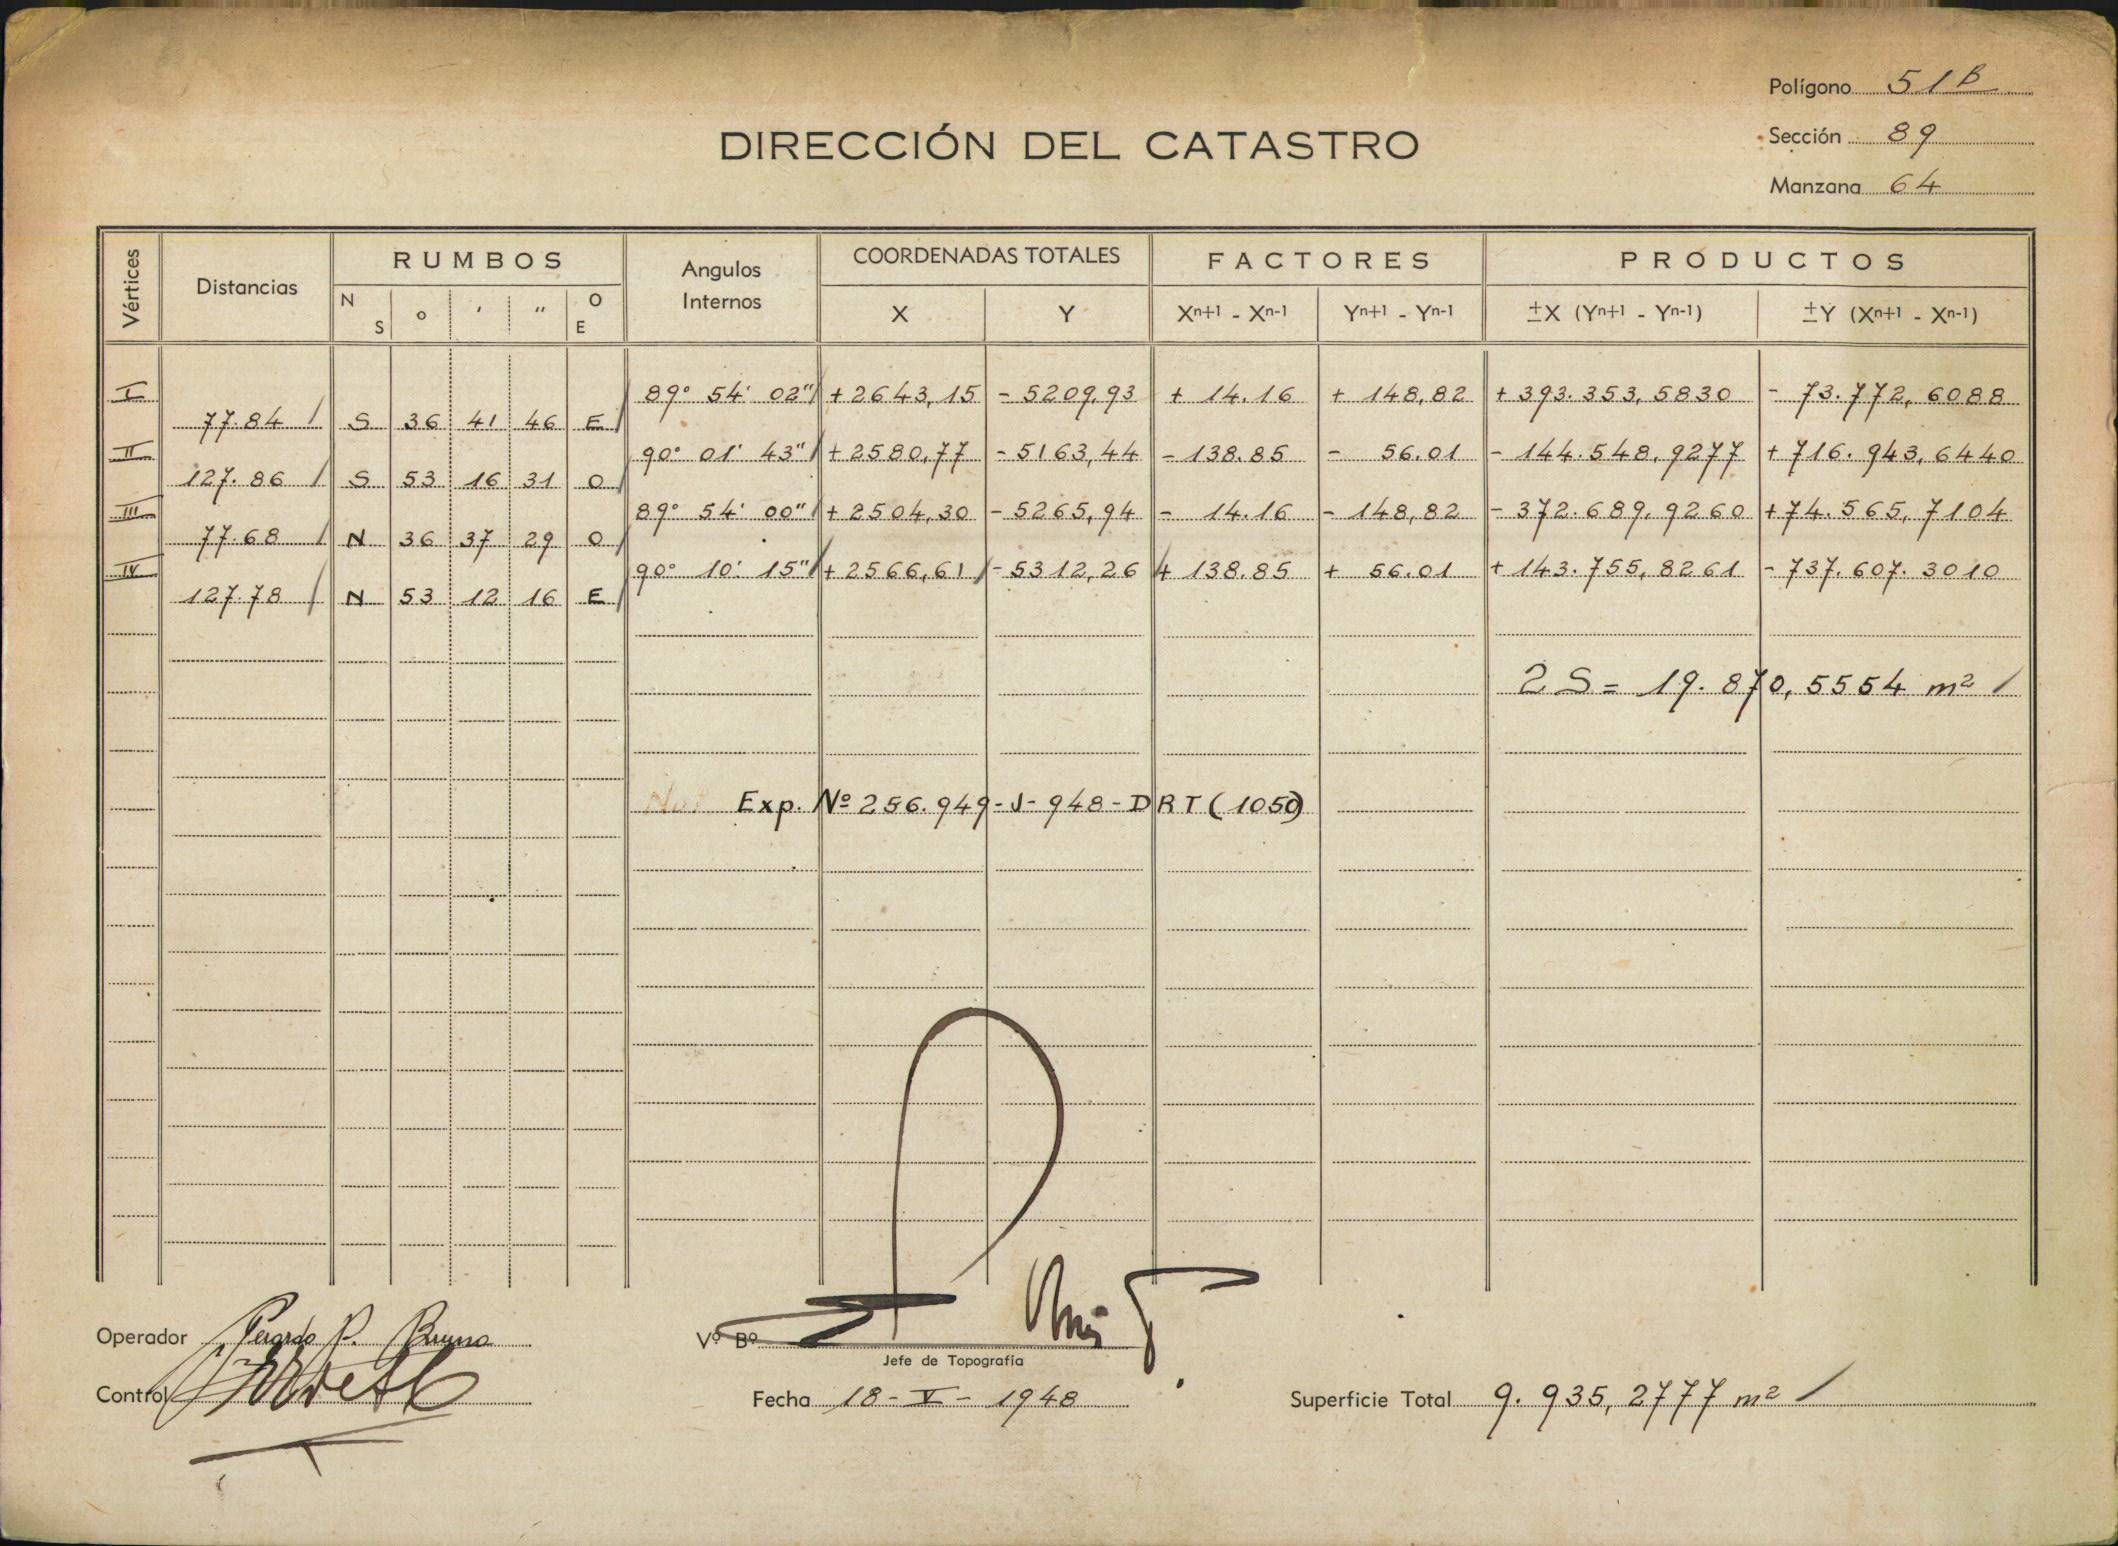 Polígono 51B
DIRECCIÓN DEL CATASTRO
Sección 89
Manzana 64
Vértices Distancias RUMBOS Angulos Internos COORDENADAS TOTALES FACTORES PRODUCTOS
N S ° ' " O E X Y Xn+1 - Xn-1 Yn+1 - Yn-1 ±X (Yn+1 - Yn-1) ±Y (Xn+1 - Xn-1)
I 89° 54' 02" +2643,15 - 5209,93 + 14.16 + 148,82 +393.353,5830 - 73.772,6088
77.84 S 36 41 46 E
II 90° 01' 43" +2580,77 - 5163,44 - 138.85 - 56.01 - 144.548,9277 +716.943,6440
127.86 S 53 16 31 O
III 89° 54' 00" +2504,30 - 5265,94 - 14.16 - 148,82 - 372.689,9260 +74.565,7104
77.68 N 36 37 29 O
IV 90° 10' 15" +2566,61 - 5312,26 + 138.85 + 56.01 +143.755,8261 - 737.607.3010
127.78 N 53 12 16 E
2 S = 19.870,5554 m²
Exp. Nº 256.949 - J - 948 - DRT (1050)
Operador Gerardo P. Bruno
Vº Bº
Jefe de Topografía
Control
Fecha 18 - V - 1948
Superficie Total 9.935,2777 m²